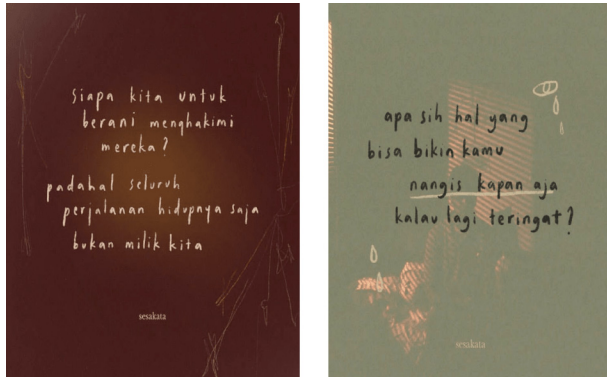 siapa kita untuk
berani menghakimi
mereka?
padahal seluruh
perjalanan hidupnya saja
bukan milik kita
sesakata
apa sih hal yang
bisa bikin kamu
nangis kapan aja
kalau lagi teringat?
sesakata